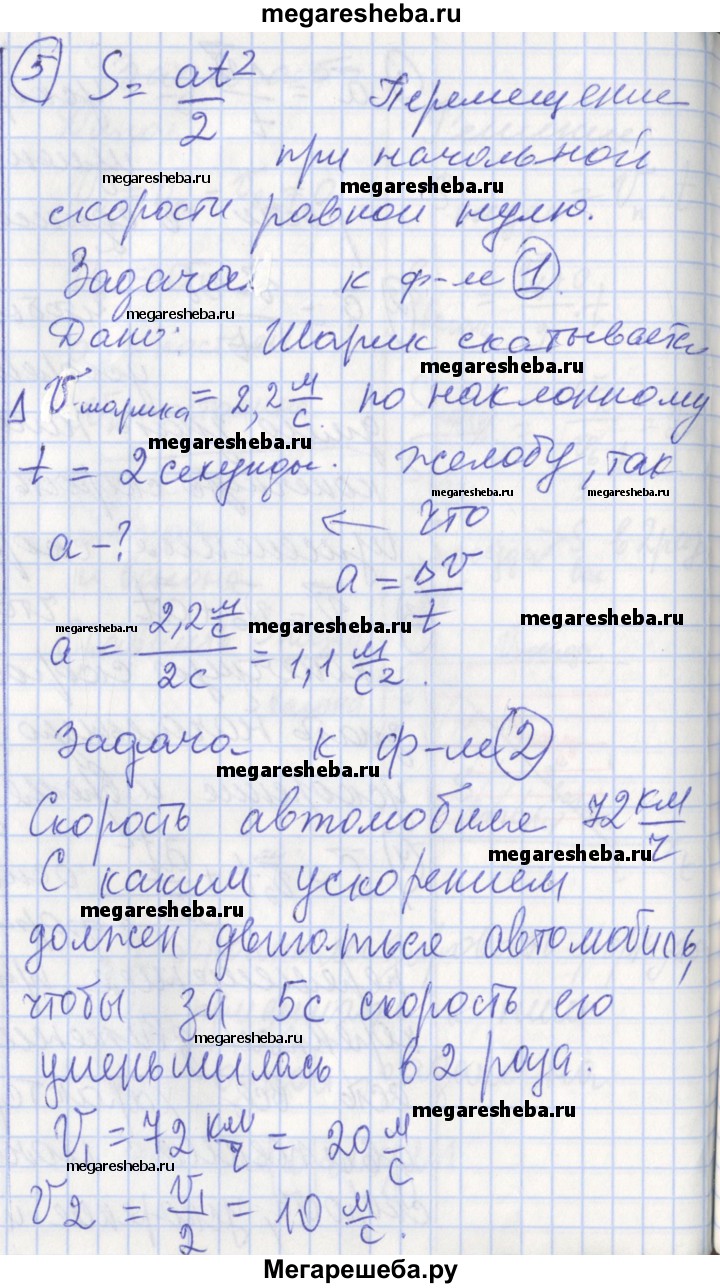 megaresheba.ru
5 S = at²/2 Перемещение
при начальной
megaresheba.ru megaresheba.ru
скорости равной нулю.
Задача к ф-ле 1
megaresheba.ru
Дано: Шарик скатывается
megaresheba.ru
Δ V шарика = 2,2 м/с по наклонному
megaresheba.ru
t = 2 секунды. желобу, так
megaresheba.ru megaresheba.ru
← что
a - ?
a = ΔV/t
megaresheba.ru megaresheba.ru megaresheba.ru
a = 2,2 м/с / 2с = 1,1 м/с².
Задача к ф-ле 2
megaresheba.ru
Скорость автомобиля 72 км/ч
megaresheba.ru
С каким ускорением
megaresheba.ru
должен двигаться автомобиль,
чтобы за 5с скорость его
megaresheba.ru
уменьшилась в 2 раза.
megaresheba.ru
V₁ = 72 км/ч = 20 м/с
megaresheba.ru
V2 = V₁/2 = 10 м/с.
megaresheba.ru
Мегарешеба.ру